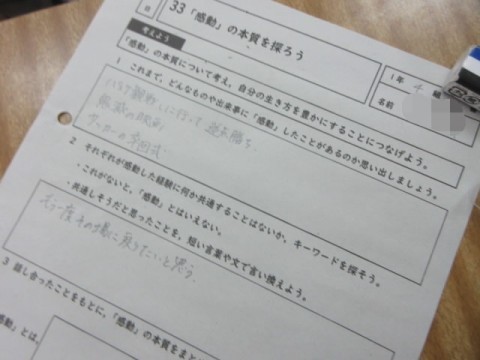 33「感動」の本質を探ろう
考えよう
「感動」の本質について考え、自分の生き方を豊かにすることにつなげよう。
1年 4 組
名前
1 これまで、どんなものや出来事に「感動」したことがあるのか思い出しましょう。
バスケ観戦しに行って 逆転勝ち
鬼滅の映画
サッカーの
2 それぞれが感動した経験に何か共通することはないか、キーワードを探そう。
・これがないと、「感動」とはいえない。
・共通しそうだと思ったことを、短い言葉や文で言い換えよう。
もう一度その場に戻りたいと思う
3 話し合ったことをもとに、「感動」の本質をまと
感動」とは、